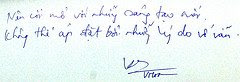 Nên cởi mở với những sáng tạo mới.
Không thể áp đặt bởi những lý do về văn